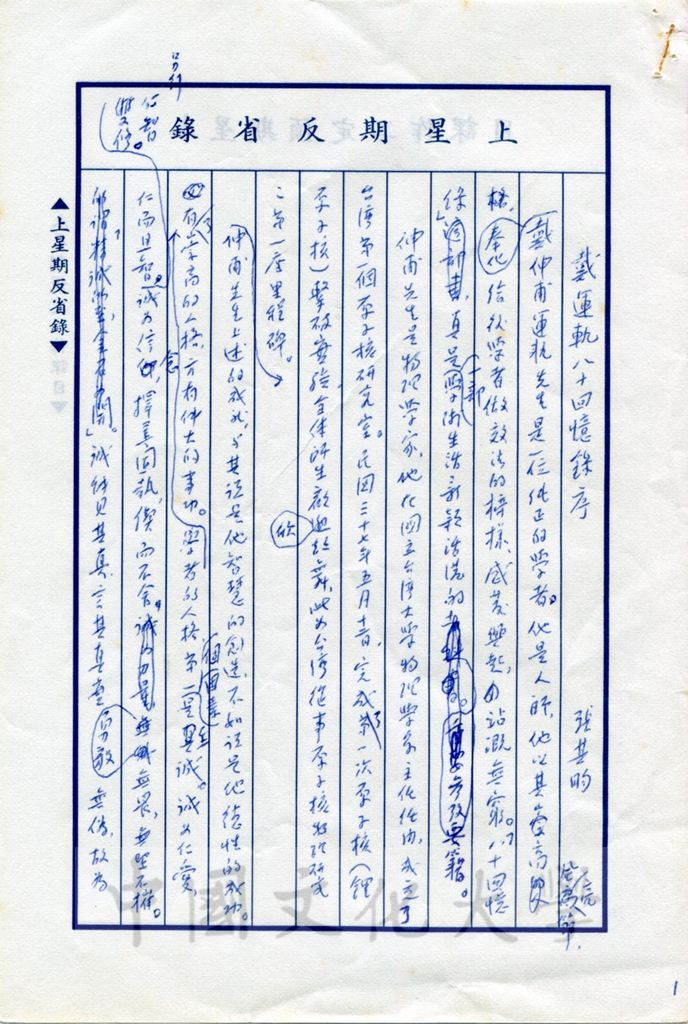 上星期反省錄
戴運軌八十回憶錄序
張其昀
戴仲甫運軌先生是一位純正的學者。他是人師,他以其崇高
風節,
楷,奉化給後學者做效法的榜樣,感發興起,沾溉無窮。「八十回憶
錄」真是一部學術生活
仲甫先生是物理學家,他在國立台灣大學物理學系主任任內,成立了
台灣第一個原子核研究室。民國三十七年五月 完成了第一次原子核(鋰
原子核)擊破實驗,全体師生歡欣鼓舞,此為台灣從事原子核物理研究
之第一座里程碑。
仲甫先生上述的成就,與其說是他智慧的創造,不如說是他德性的成功。
有了崇高的人格,方有偉大的事功。學者的人格第一個因素是真誠。誠為仁愛,
仁而且智。誠為信念,擇善固執,鍥而不舍。無畏,無堅不摧。
所謂「精誠所至,金石為開。」誠係見其真,言其真,勇敢無偽,故為
仁智雙修。
另行
▲上星期反省錄▼
中國文化大學
1